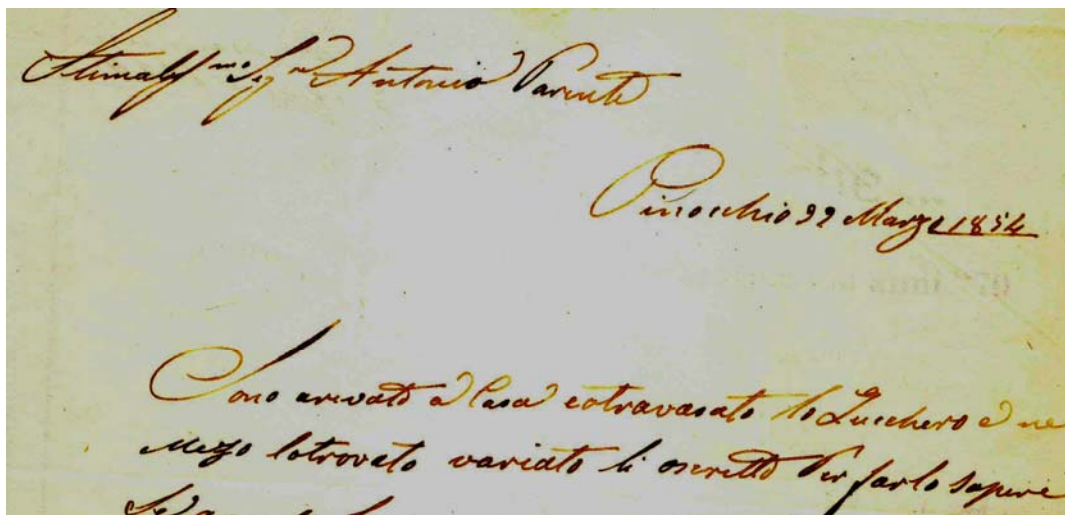 Stimabmo Sigr Antonio Parente
Pinocchio 22 Marzo 1854
Sono arivato à Casa eotravasato lo Zucchero è ne
Mezo lotrovato variato li oscritto Per farlo sapere